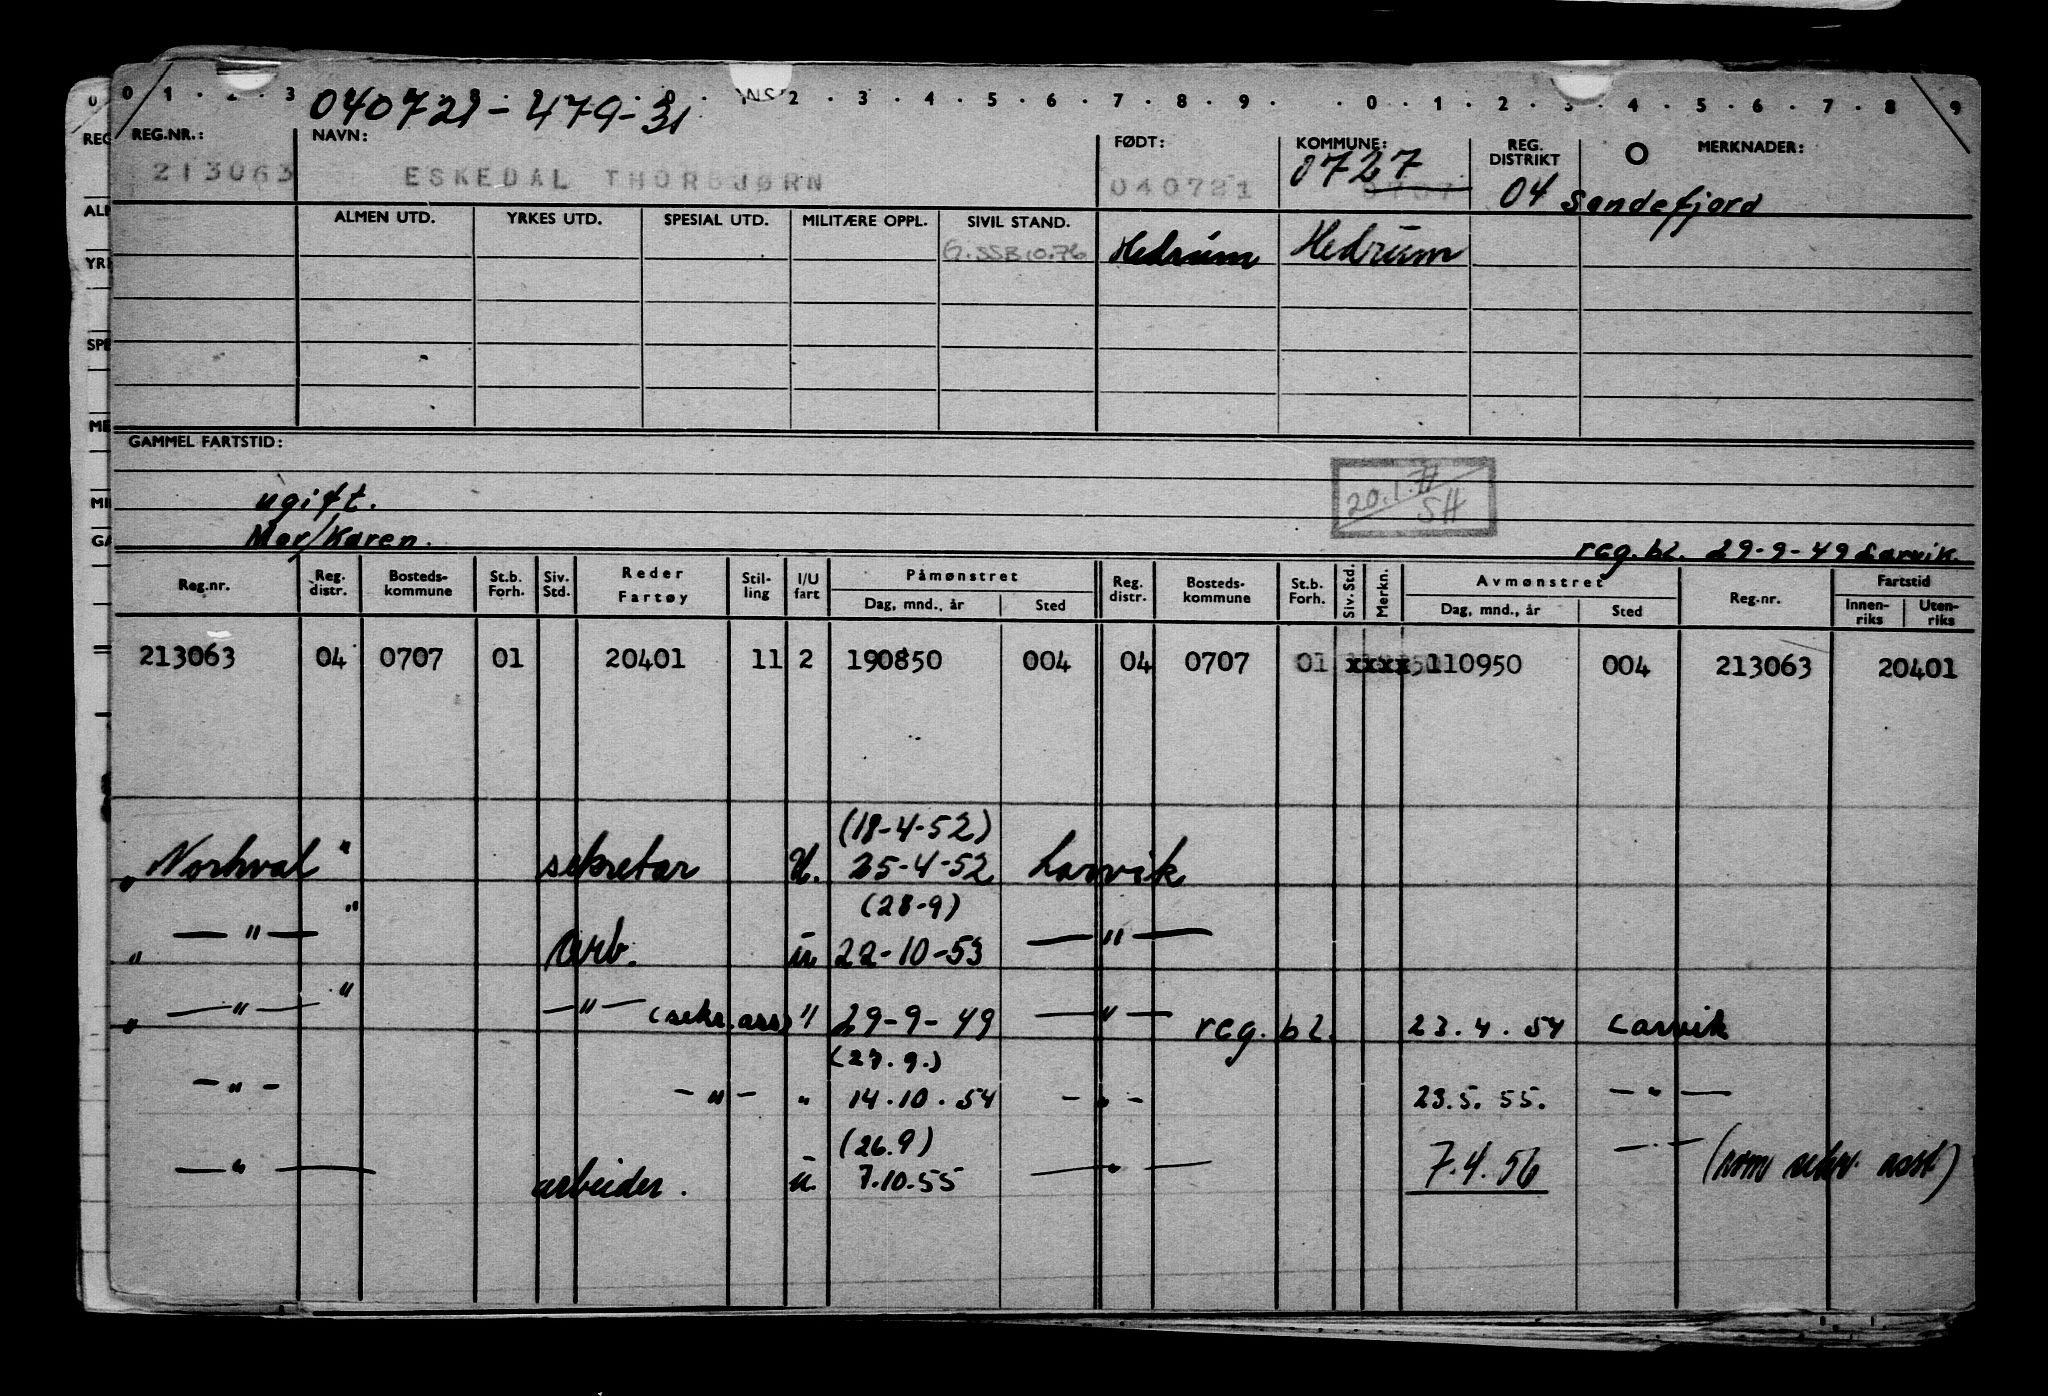 0 1 . 2 . 3 2 . 3 . 4 . 5 . 6 . 7 . 8 . 9 . . 0 . 1 . 2 . 3 . 4 . 5 . 6 . 7 . 8 9
040721-479-31
REG.NR.: NAVN: FØDT: KOMMUNE: REG. DISTRIKT MERKNADER:
213063 ESKEDAL THORBJØRN 040721 0727 0707 04 Sandefjord
ALMEN UTD. YRKES UTD. SPESIAL UTD. MILITÆRE OPPL. SIVIL STAND.
G.SSB.10.76 Hedrum Hedrum
GAMMEL FARTSTID:
ugift. 20.1.77 SH
Mor/Karen. reg.bl. 29-9-49 Larvik.
Reg.nr. Reg. distr. Bosteds- kommune St.b. Forh. Siv. Std. Reder Fartøy Stil- ling I/U fart Påmønstret Reg. distr. Bosteds- kommune St.b. Forh. Siv. Std. Merkn. Avmønstret Reg.nr. Fartstid
Dag, mnd., år Sted Dag, mnd., år Sted Innen- riks Uten- riks
213063 04 0707 01 20401 11 2 190850 004 04 0707 01 xxxx 110950 004 213063 20401
(18-4-52)
" Norhval " sekretær U. 25-4-52 Larvik
(28-9)
" — " — " Arb. u. 22-10-53 — " —
" — " — " — " — (sekr.ass) " 29-9-49 — " — reg.bl. 23.4.54 Larvik
(27.9.)
— " — — " — " 14.10.54 — " — 23.5.55. — " —
(26.9)
— " — arbeider. u. 7.10.55 — " — 7.4.56 — " — (som sekr. asst)